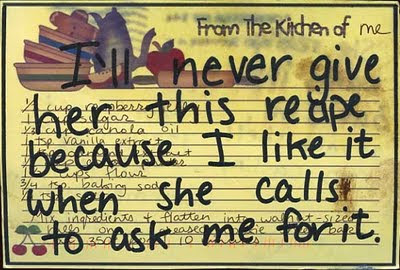 From The Kitchen of me
I'll never give
her this recipe
because I like it
when she calls
to ask me for it.
cup raspberry
sugar
cup canola oil
1 tsp vanilla
cups flour
3/4 tsp baking soda
Mix ingredients & flatten into walnut-sized
balls on greased
350 10 minutes